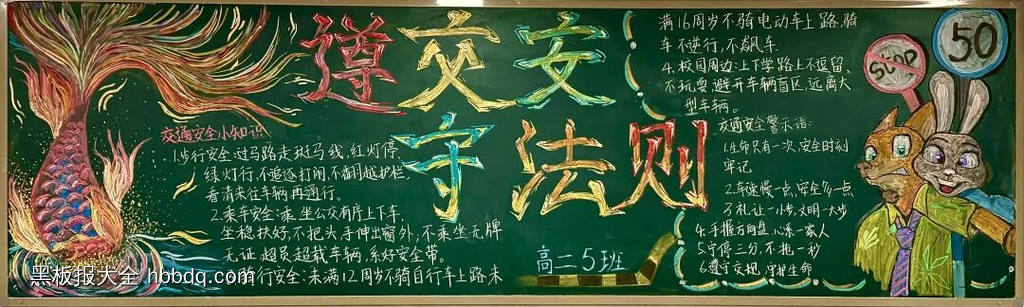 遵交安
守法则
交通安全小知识
1.步行安全:过马路走斑马线,红灯停,
绿灯行,不追逐打闹,不翻越护栏,
看清来往车辆再通行。
2.乘车安全:乘坐公交有序上下车,
坐稳扶好,不把头手伸出窗外,不乘坐无牌
无证、超员超载车辆,系好安全带。
骑行安全:未满12周岁不骑自行车上路,未
满16周岁不骑电动车上路,骑
车不逆行,不飙车.
4.校园周边:上下学路上不逗留,
不玩耍,避开车辆盲区,远离大
型车辆。
交通安全警示语:
1.生命只有一次,安全时刻
牢记
2.车速慢一点,安全多一点
3.礼让一小步,文明一大步
4.手握方向盘,心系一家人
5.宁停三分,不抢一秒
6.遵守交规,守护生命
高二5班
STOP
50
黑板报大全 hbbdq.com